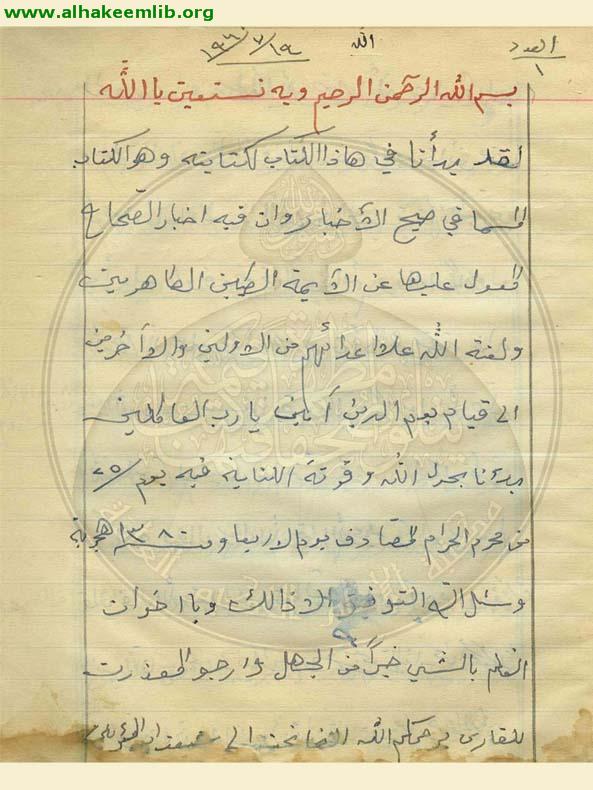 www.alhakeemlib.org
العدد الله ١٩/٧/١٩٦٠
١
بسم الله الرحمن الرحيم وبه نستعين يا الله
لقد بدأنا في هاذا الكتاب لكتابته وهو الكتاب
المسما في صحيح الأخبار وان فيه اخبار الصحاح
المعول عليها عن الأيمة الطيبين الطاهرين
ولعنة الله علا اعدائهم من الاولين والآخرين
الى قيام يوم الدين آمين يا رب العالمين
بدئنا بحول الله وقوته الكتابة فيه يوم ٢٥/
من محرم الحرام المصادف يوم الاربعا وسنة ١٣٨٠ هجرية
ونسئل الله التوفيق لذالك ويا اخوان
العلم بالشيئ خيراً من الجهل وارجو المعذرت
للقارئ يرحمكم الله الفاتحت الى